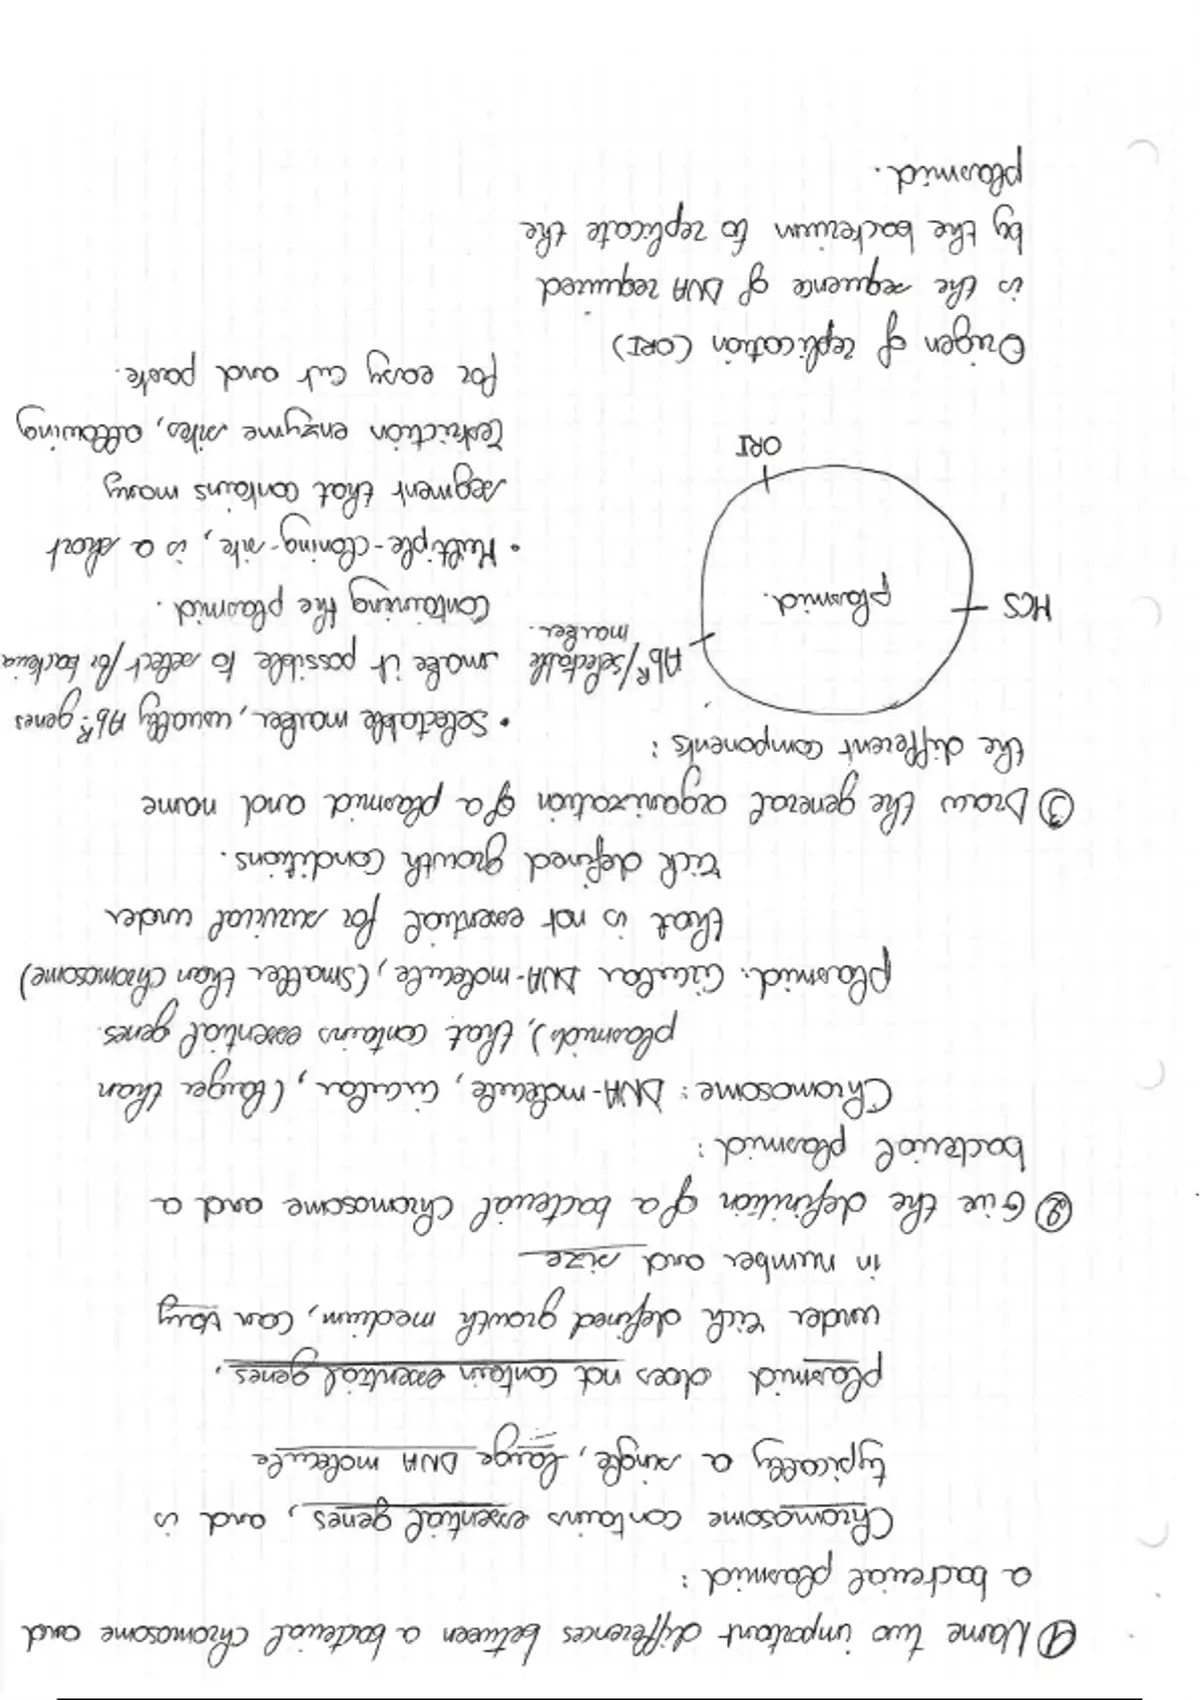 ① Name two important differences between a bacterial chromosome and
a bacterial plasmid :
Chromosome contains essential genes, and is
typically a single, large DNA molecule
plasmid does not contain essential genes,
under rich defined growth medium, can vary
in number and size
② Give the definition of a bacterial chromosome and a
bacterial plasmid :
Chromosome : DNA-molecule, circular, (larger than
plasmids), that contains essential genes.
plasmid: Circular DNA-molecule, (smaller than chromosome)
that is not essential for survival under
rich defined growth conditions.
③ Draw the general organization of a plasmid and name
the different components :
MCS
plasmid.
AbR/selectable
marker.
ORI
• Selectable marker, usually AbR genes
make it possible to select for bacteria
containing the plasmid.
• Multiple-cloning-site, is a short
segment that contains many
restriction enzyme sites, allowing
for easy cut and paste.
Origen of replication (ORI)
is the sequence of DNA required
by the bacterium to replicate the
plasmid.